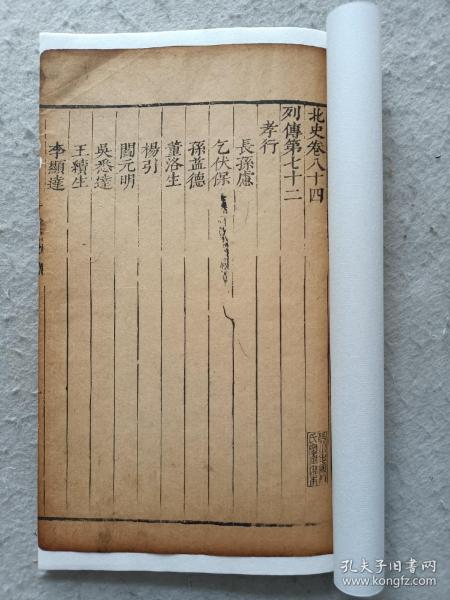 北史卷八十四
列傳第七十二
孝行
長孫慮
乞伏保
孫益德
董洛生
楊引
閻元明
吳悉達
王續生
李顯達
孔夫子旧书网
www.kongfz.com